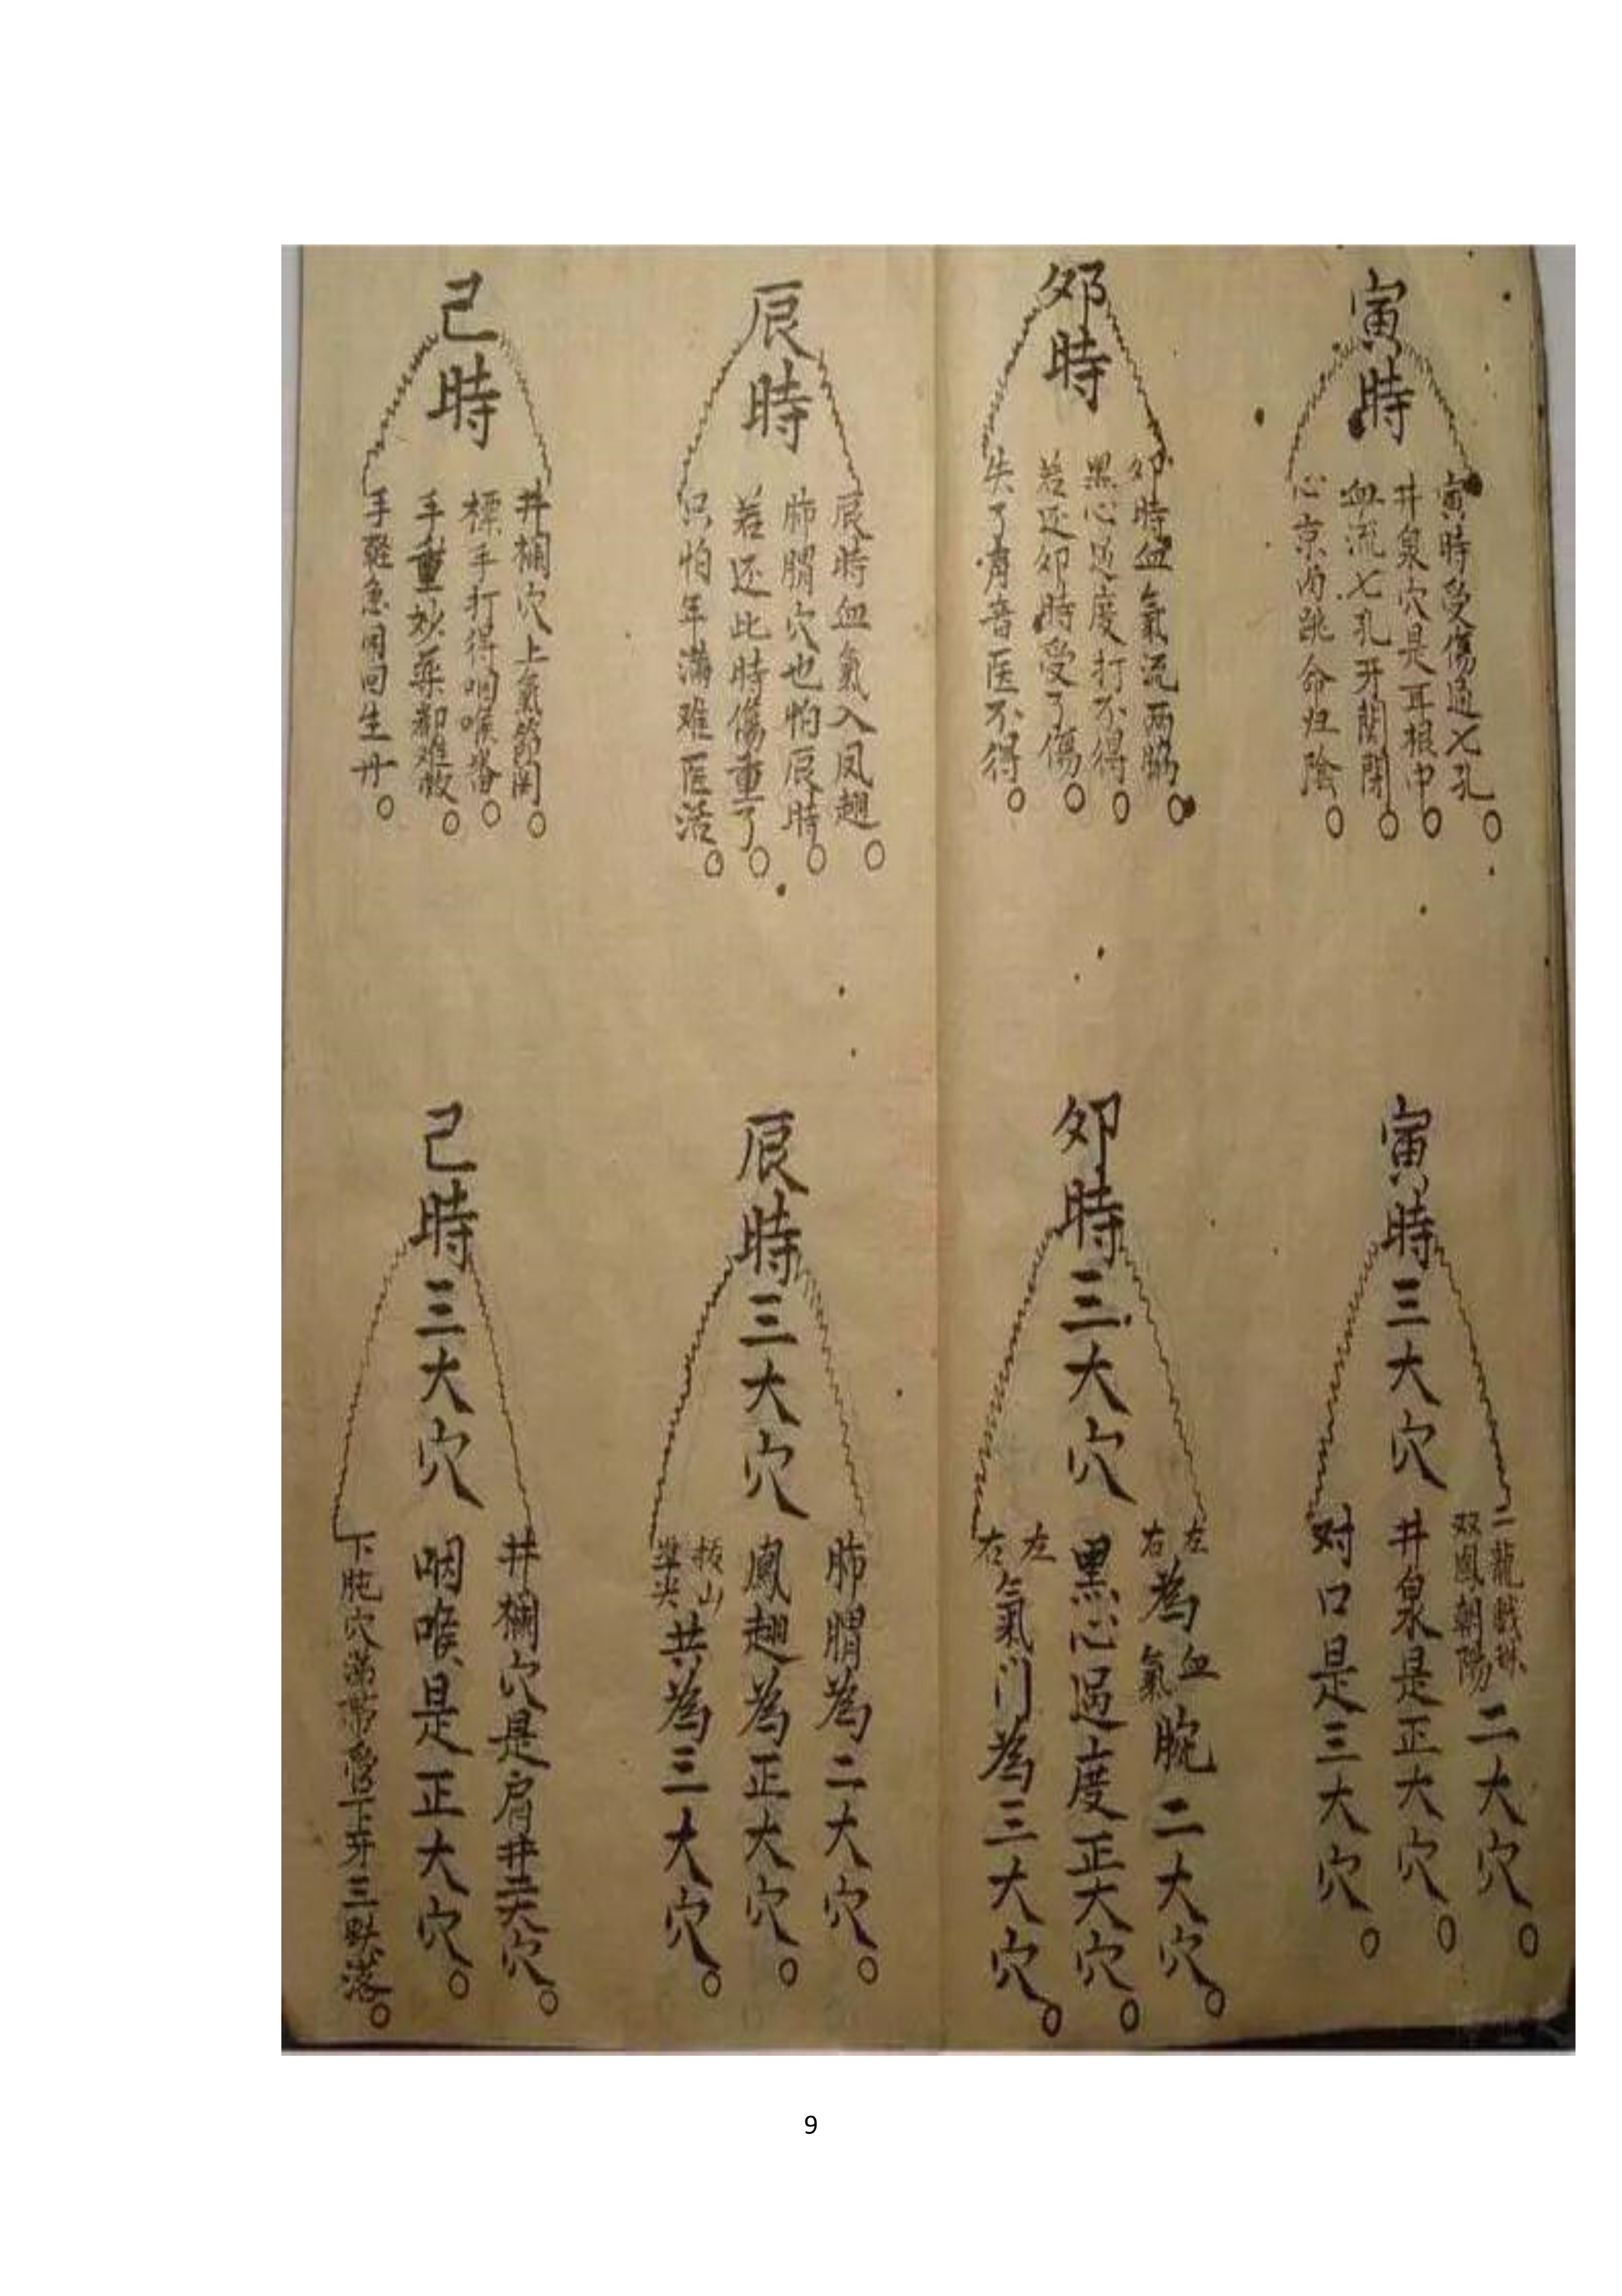 寅時
寅時受傷通七孔
井泉穴是耳根中
血流七孔开関閉
心京肉跳命归陰
夘時
夘時血氣流两
黒心过度打不得
若还夘時受了傷
失了育音医不得
辰時
辰時血氣入凤翅
肺腊穴也怕辰時
若还此時傷重了
只怕年满难医活
己時
井欄穴上氣節関
標手打得咽喉
手重妙藥都难救
手輕急用回生丹
寅時三大穴
二龍戲珠
双鳳朝陽
二大穴
井泉是正大穴
对口是三大穴
夘時三大穴
左右為血氣腕二大穴
黒心過度正大穴
左右氣门為三大穴
辰時三大穴
肺腊為二大穴
鳳翅為正大穴
扳山準尖共為三大穴
己時三大穴
井欄穴是肩井二大穴
咽喉是正大穴
下肫穴
下牙三
9